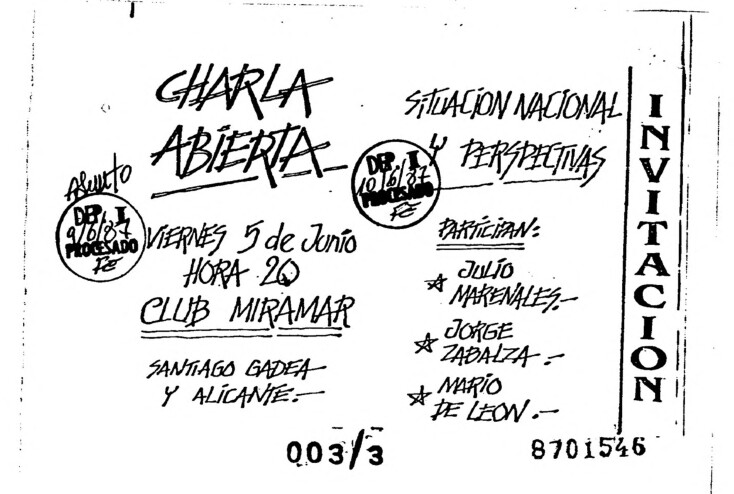 CHARLA
ABIERTA
Asunto
DEP. I
9/6/87
PROCESADO
VIERNES 5 de Junio
HORA 20
CLUB MIRAMAR
SANTIAGO GADEA
Y ALICANTE.-
SITUACION NACIONAL
Y PERSPECTIVAS
DEP. II
10/6/87
PROCESADO
PARTICIPAN:
☆ JULIO
MARENALES.-
☆ JORGE
ZABALZA.-
☆ MARIO
DE LEON.-
INVITACION
003/3
8701546